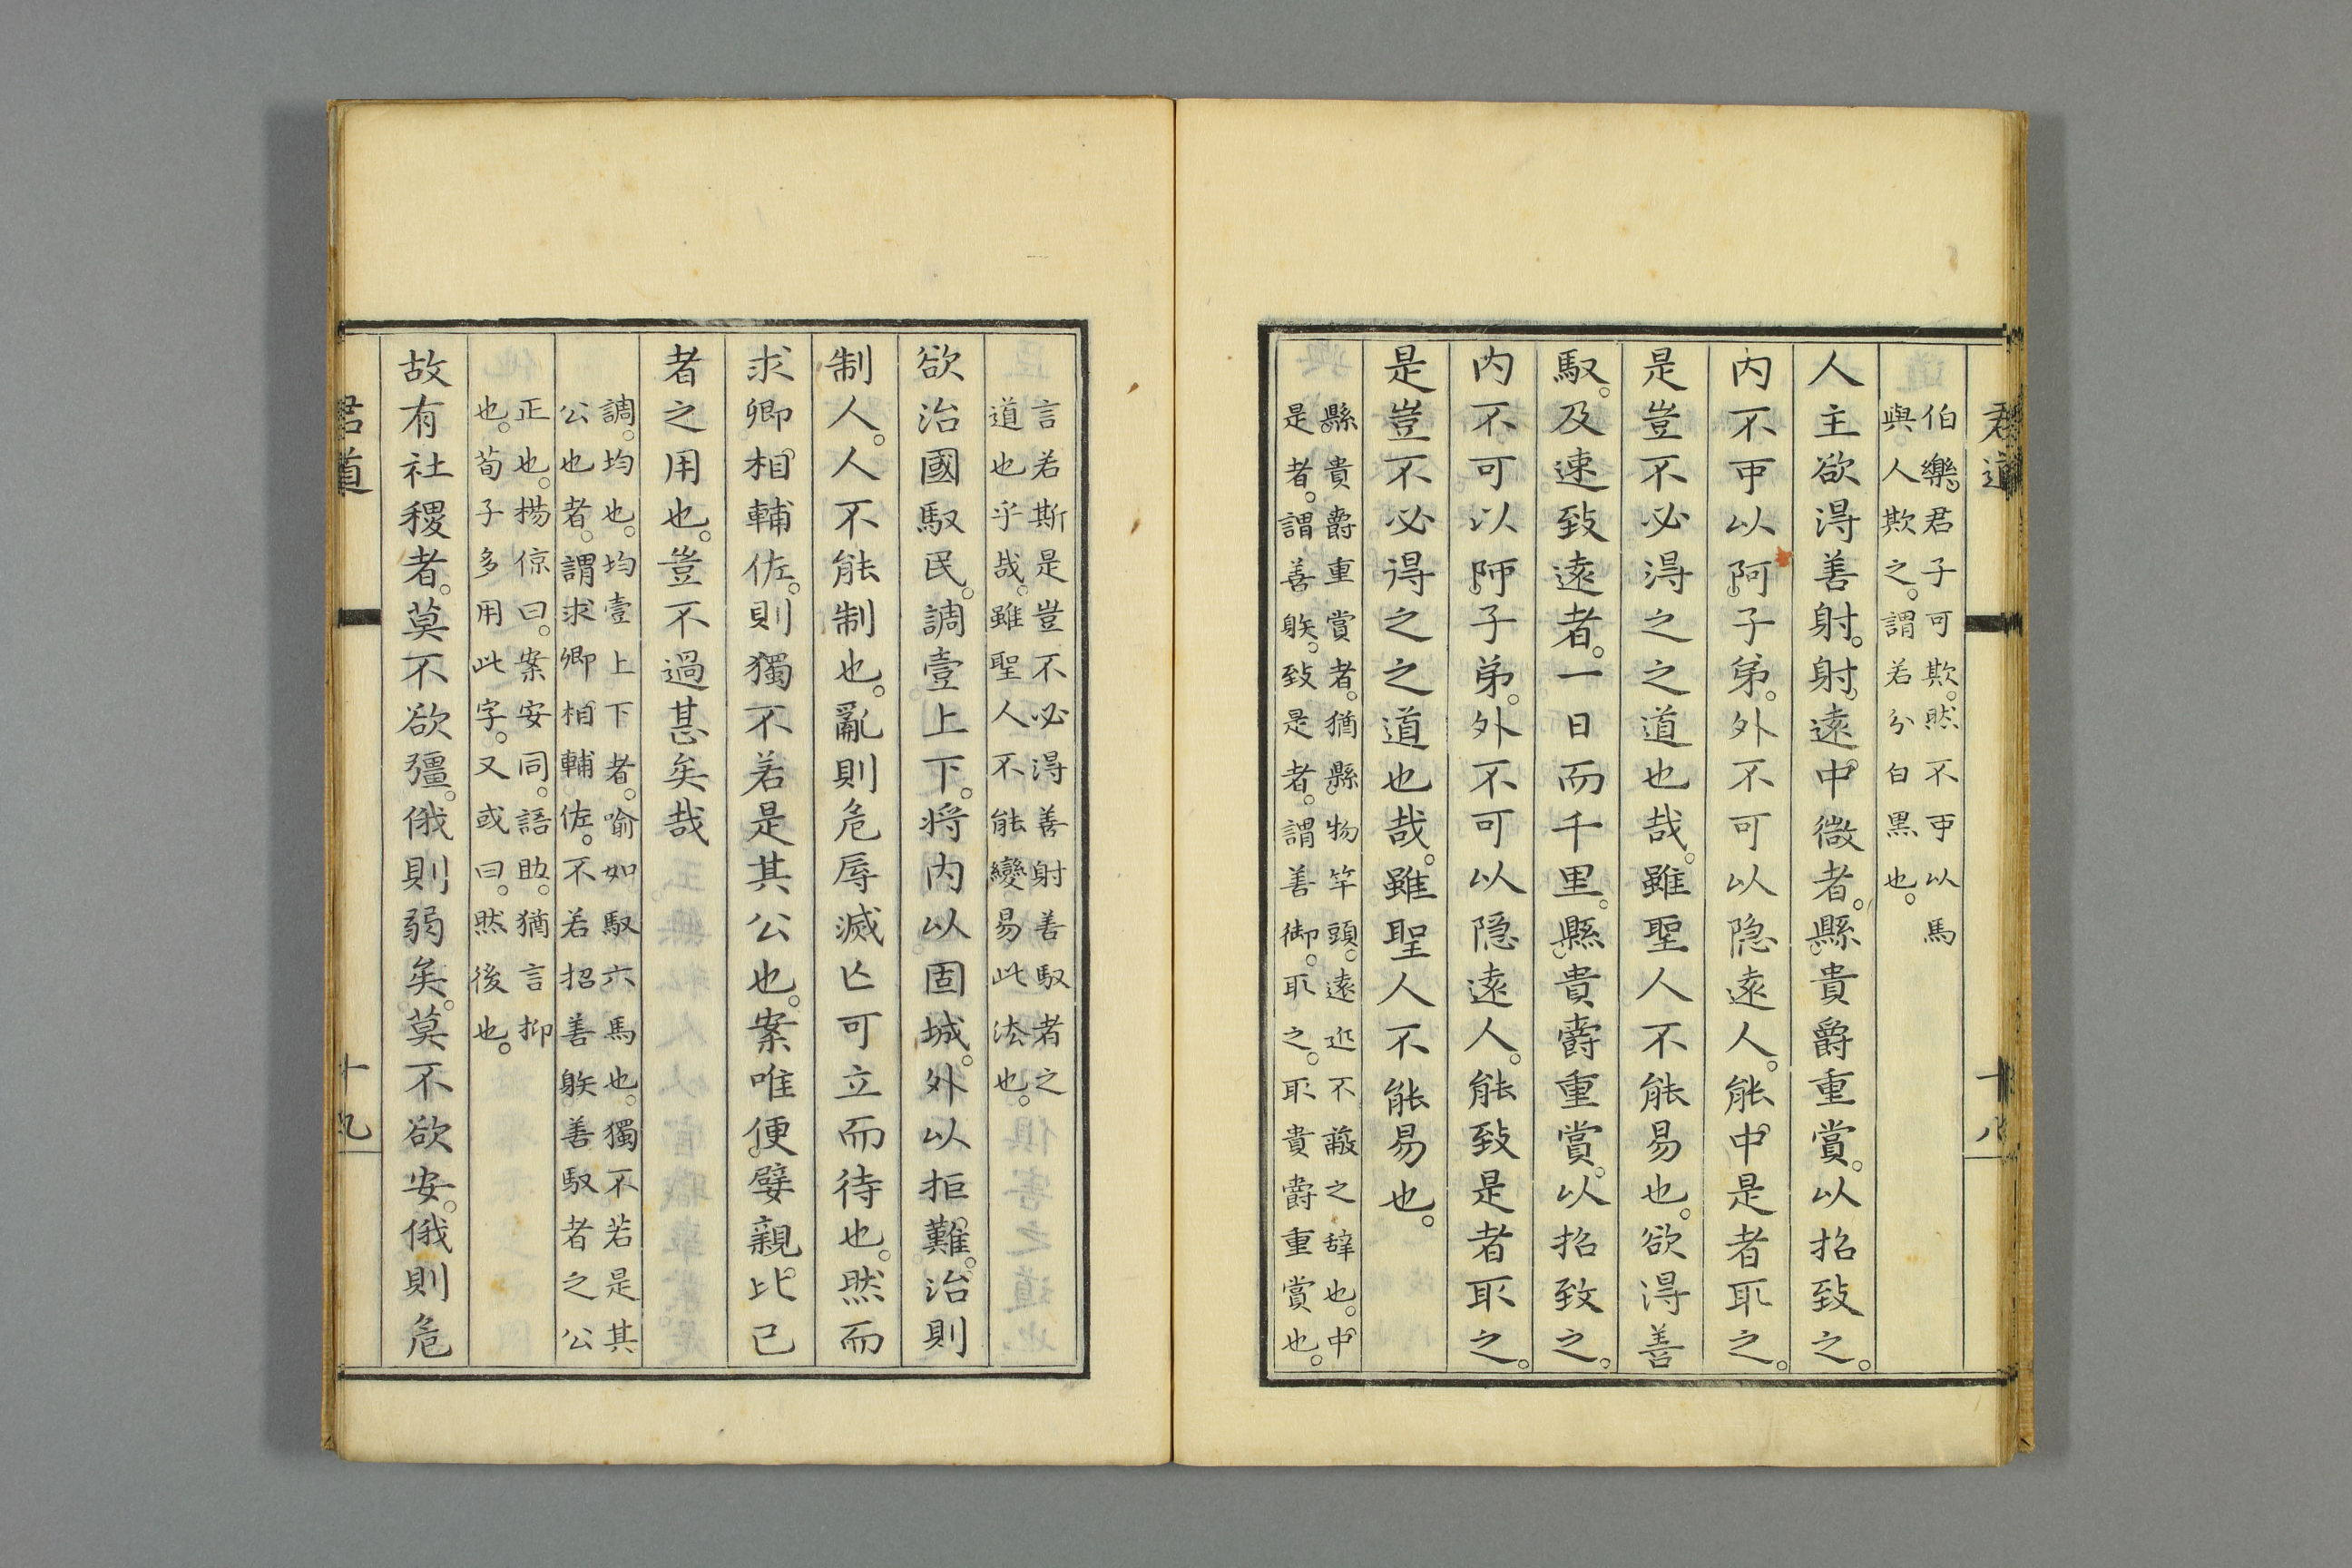 君道 十八
伯樂。君子可欺。然不可以馬
與人欺之。謂若分白黑也。
人主欲淂善射。射。遠中微者。縣貴爵重賞。以招致之。
内不可以阿子弟。外不可以隐遠人。能中是者取之。
是豈不必淂之之道也哉。雖聖人不能易也。欲淂善
馭。及速致遠者。一日而千里。縣貴爵重賞。以招致之。
内不可以阿子弟。外不可以隐遠人。能致是者取之。
是豈不必得之之道也哉。雖聖人不能易也。
縣貴爵重賞者。猶縣物竿頭。遠近不蔽之辞也。中
是者。謂善躲。致是者。謂善御。取之。取貴爵重賞也。
言若斯是豈不必淂善射善馭者之
道也乎哉。雖聖人不能變易此法也。
欲治國馭民。調壹上下。将内以固城。外以拒難。治則
制人。人不能制也。亂則危辱滅亡可立而待也。然而
求卿相輔佐。則獨不若是其公也。案唯便嬖親比己
者之用也。豈不過甚矣哉
調。均也。均壹上下者。喻如馭六馬也。獨不若是其
公也者。謂求卿相輔佐。不若招善躲善馭者之公
正也。楊倞曰。案安同。語助。猶言抑
也。荀子多用此字。又或曰。然後也。
故有社稷者。莫不欲彊。俄則弱矣。莫不欲安。俄則危
君道 十九